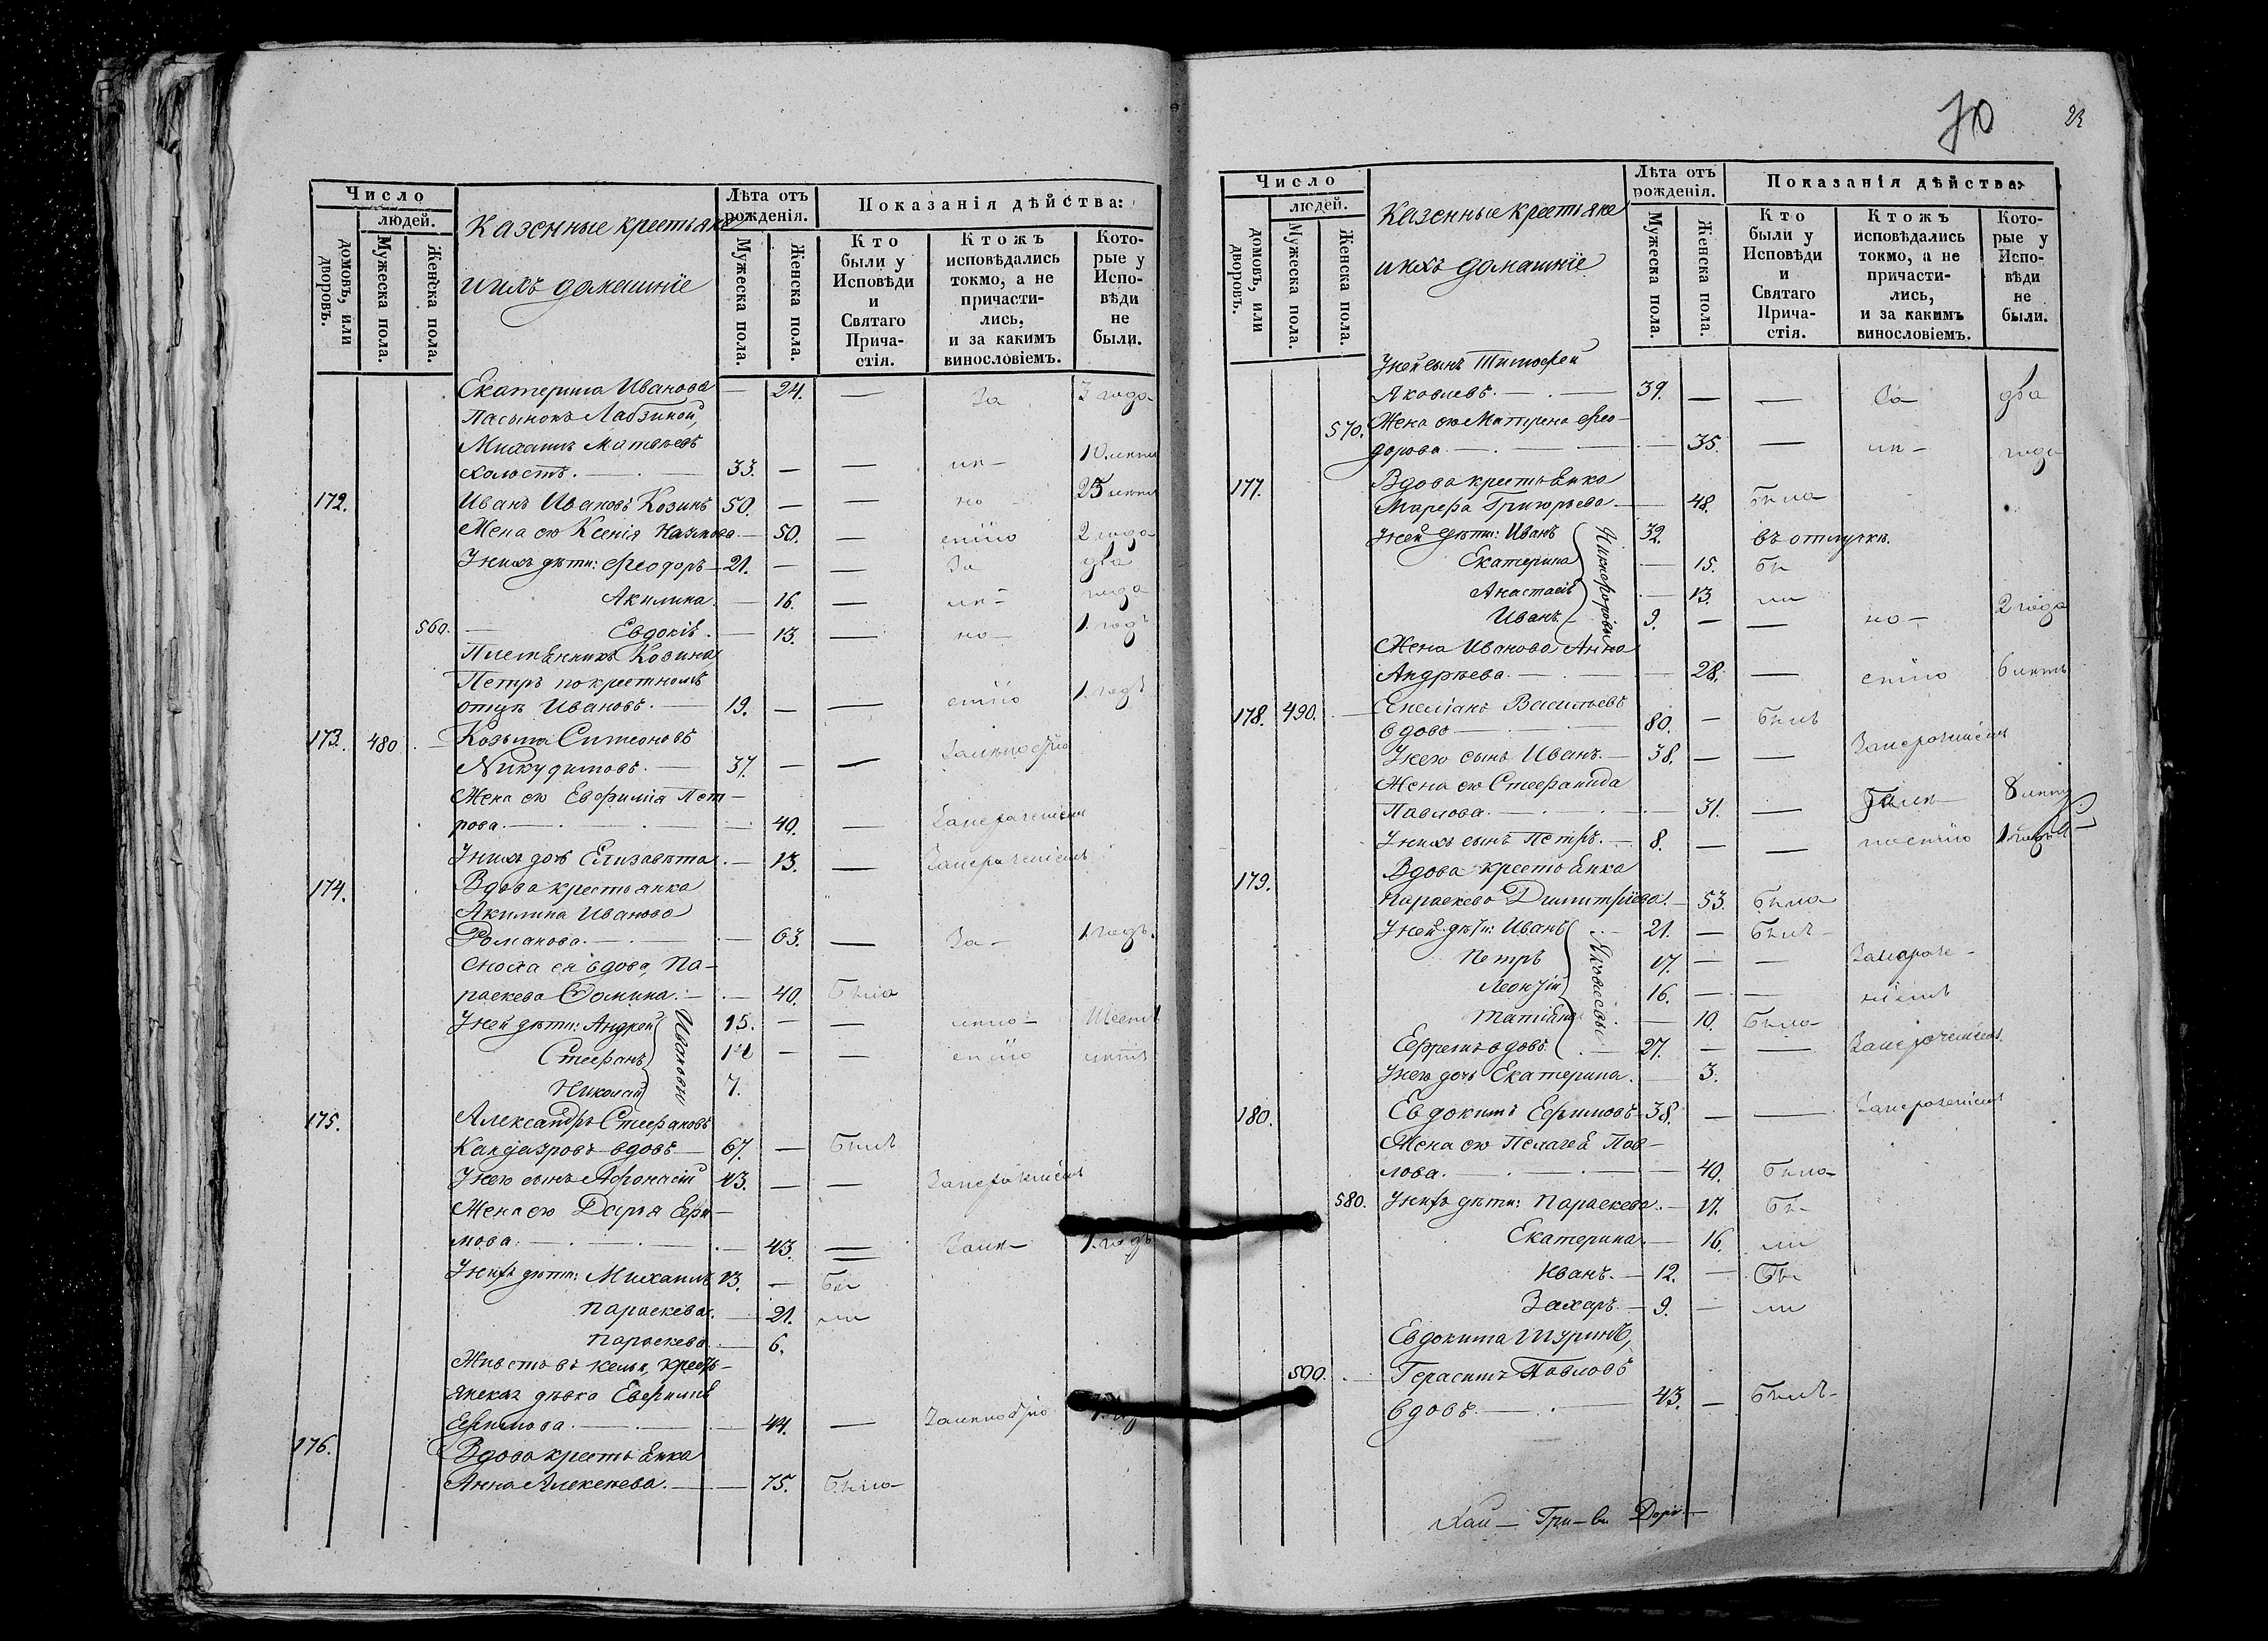 Число
людей.
домовъ, или дворовъ.
Мужеска пола.
Женска пола.
Казенные крестьяне
и ихъ домашніе
Лѣта отъ рожденія.
Мужеска пола.
Женска пола.
Показанія дѣйства:
Кто были у Исповѣди и Святаго Прича-стія.
Ктожъ исповѣдались токмо, а не причасти-лись, и за какимъ винословіемъ.
Кото-рые у Испо-вѣди не были.
Екатерина Иванова — 24. — За 3 года
Пасынокъ Лабзиной,
Михаилъ Матвѣевъ
холостъ. — 33. — — лѣ-
172. Иванъ Ивановъ Козинъ 50. — — но
Жена его Ксенія — 50. — стію 2 года
У нихъ дѣти: Феодоръ — 21. — — За два
Акилина. — 16. — лѣ- года
560. Евдокія. — 13. — но- 1. годъ
Племянникъ Козина
Петръ по крестномъ
отцѣ Ивановъ. — 19. — — стію 1. годъ
173. 480. Козьма Симеоновъ
Никудимовъ. — 37. — — За лѣностію
Жена его Евфимія Пет-
рова. — 40. — За пераченіемъ
У нихъ дочь Елизавета. — 13. —
174. Вдова крестьянка
Акилина Иванова
Романова. — 63. — За- 1 годъ.
Сноха ея вдова, Па-
раскева Фомина. — 40. Была
У ней дѣти: Андрей 15. — — лѣно- Шесть
Стефанъ 12 — — стію лѣтъ
Николай 7.
Ивановы
175. Александръ Стефановъ
вдовъ — 67. — Былъ
У него сынъ Афонасій 43. — —
Жена его Дарья Ефи-
мова. — 43. — За лѣ- 1. годъ
У нихъ дѣти: Михаилъ 13. — Бы
Параскева. — 21. ли
Параскева — 6.
Живетъ въ кельи, кресть-
янская дѣвка Евфимія
Ефимова. — 44. — За лѣностію
176. Вдова крестьянка
Анна Алексѣева. — 75. Была
70
Число
людей.
домовъ, или дворовъ.
Мужеска пола.
Женска пола.
Казенные крестьяне
и ихъ домашніе
Лѣта отъ рожденія.
Мужеска пола.
Женска пола.
Показанія дѣйства:
Кто были у Исповѣди и Святаго Прича-стія.
Ктожъ исповѣдались токмо, а не причасти-лись, и за какимъ винословіемъ.
Кото-рые у Испо-вѣди не были.
У ней сынъ Тимофей
Яковлевъ. — 39. — — За два
570. Жена его Матрена Фео-
дорова — 35. — лѣ- года
177. Вдова крестьянка
Марфа Григорьева — 48. Была
У ней дѣти: Иванъ 32. въ отлучкѣ.
Екатерина — 15. Бы
Анастасія — 13. ли
Иванъ. 9. — — но- 2 года
Никифоровы
Жена Иванова Анна
Андреева. — 28. — стію 6 лѣтъ
178. 490. Емеліанъ Васильевъ
вдовъ — 80. — Былъ
У него сынъ Иванъ. — 38. — —
Жена его Стефанида
Павлова. — 31. — 8 лѣтъ
У нихъ сынъ Петръ. — 8. — — ностію 1 годъ
179. Вдова крестьянка
Параскева Димитріева. — 53. Была
У ней дѣти: Иванъ — 21. — Былъ
Петръ 17. — —
Леонтій 16. — — ніемъ
Татіяна — 10. Была
Яковлевы
Ефремъ вдовъ. — 27. — —
У него дочь Екатерина. — 3.
180. Евдокимъ Ефимовъ — 38. — —
Жена его Пелагея Пав-
лова. — 40. Была
580. У нихъ дѣти: Параскева. — 17. Бы-
Екатерина. — 16. ли
Иванъ. — 12. — Бы
Захаръ. — 9. — ли
Евдокима Шуринъ,
500. Герасимъ Павловъ
вдовъ. — 43. — Былъ